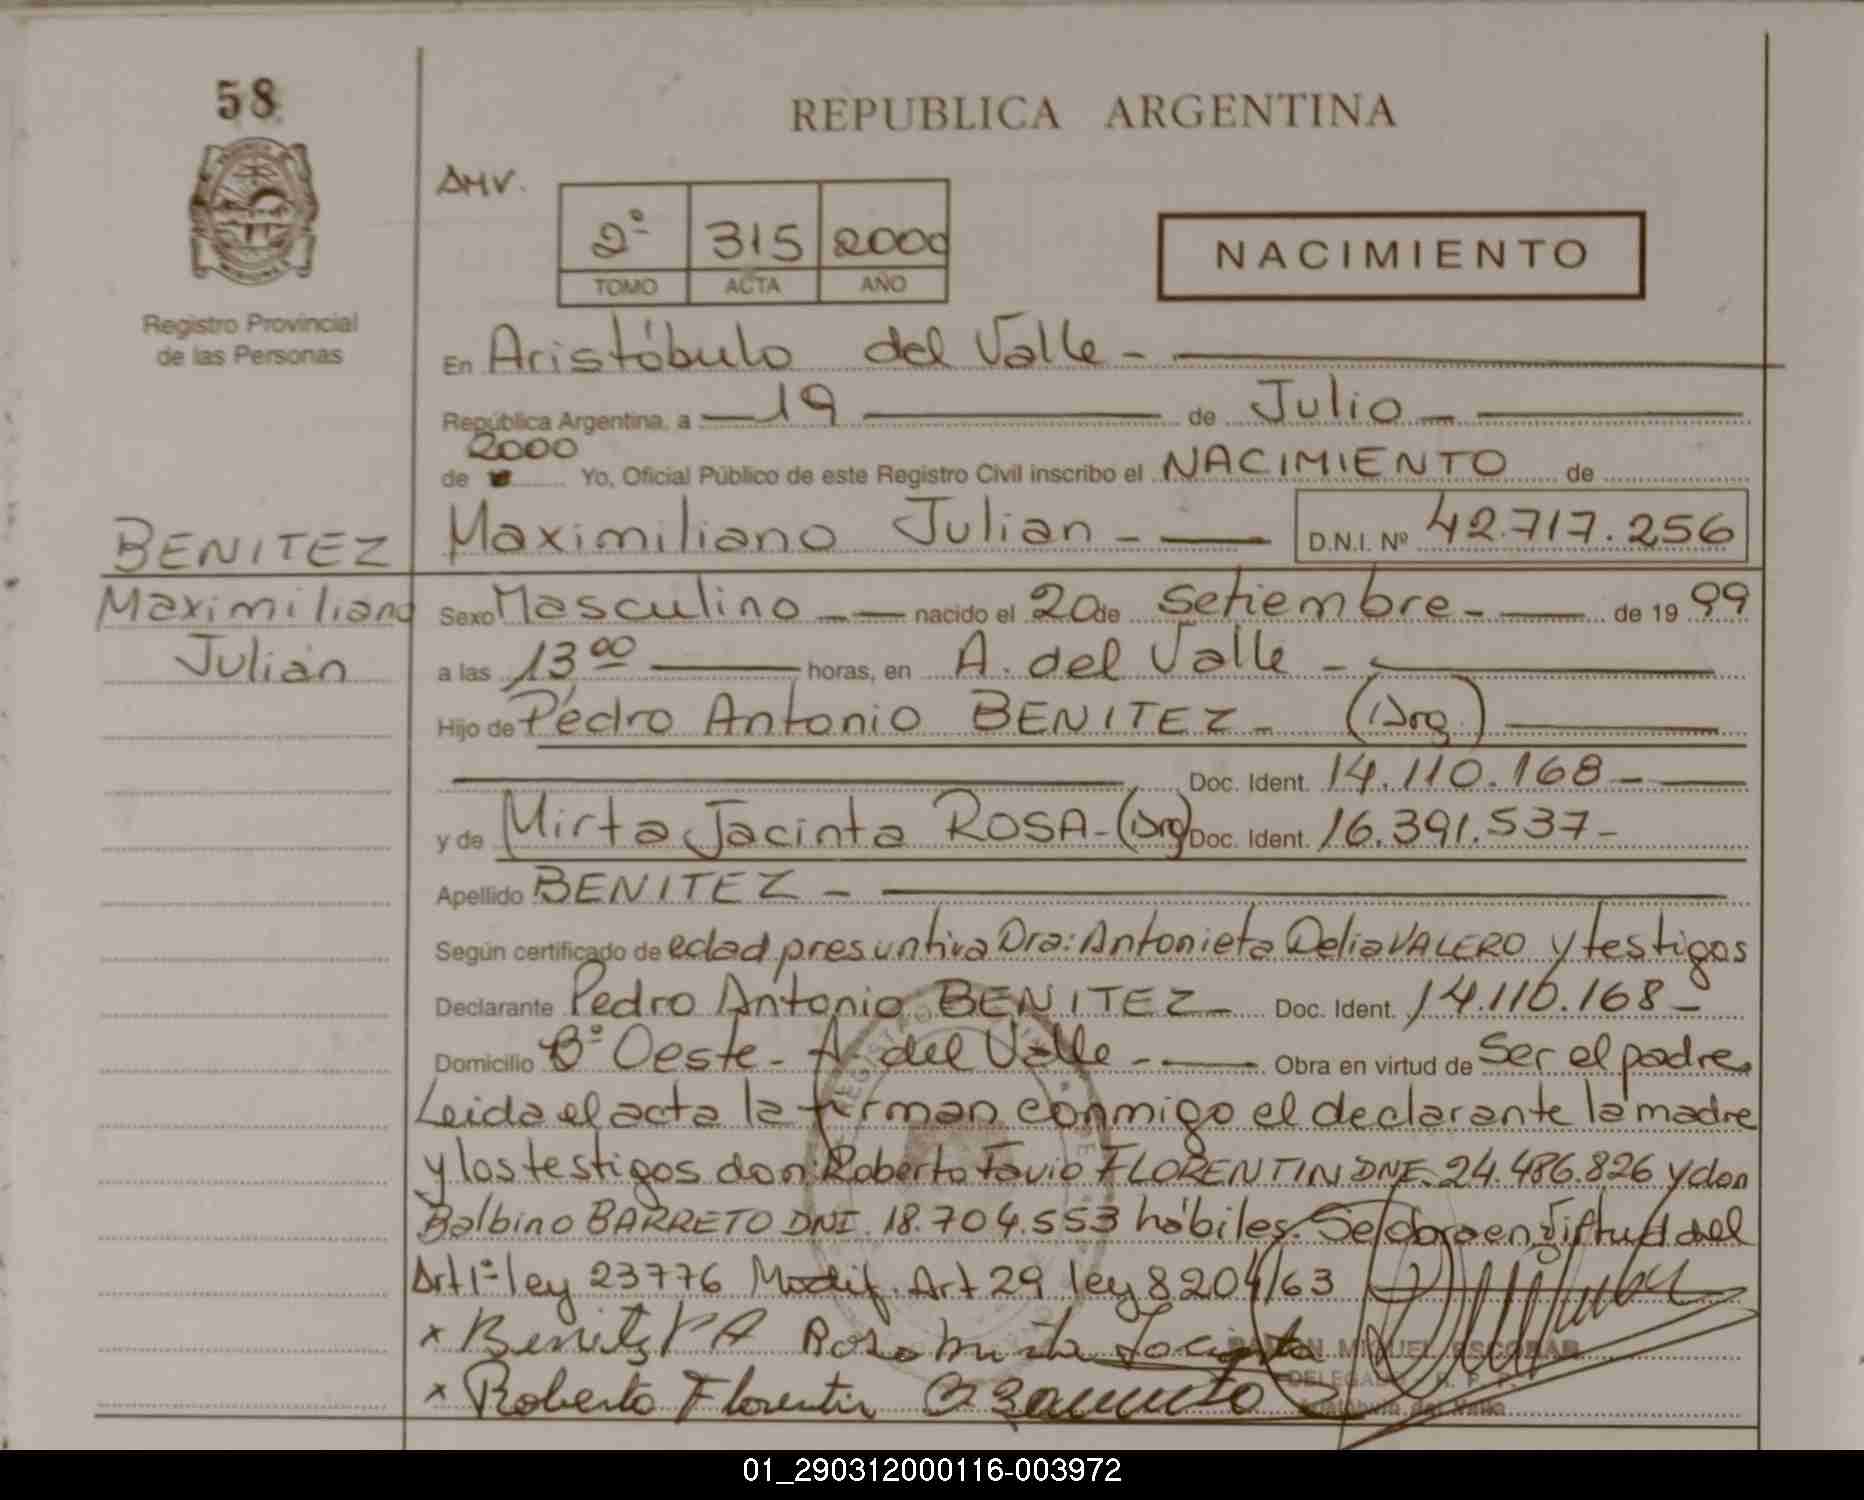 58
REPUBLICA ARGENTINA
AMV.
2º 315 2000
TOMO ACTA AÑO
NACIMIENTO
Registro Provincial
de las Personas
En Aristóbulo del Valle -
República Argentina, a 19 de Julio
2000
de Yo, Oficial Público de este Registro Civil inscribo el NACIMIENTO de
BENITEZ
Maximiliano
Julián
Maximiliano Julian - D.N.I. Nº 42.717.256
Sexo Masculino nacido el 20 de Setiembre - de 19 99
a las 13 00 horas, en A. del Valle -
Hijo de Pedro Antonio BENITEZ - (Arg.)
Doc. Ident. 14.110.168 -
y de Mirta Jacinta ROSA - (Arg) Doc. Ident. 16.391.537 -
Apellido BENITEZ -
Según certificado de edad presuntiva Dra: Antonieta Delia VALERO y testigos
Declarante Pedro Antonio BENITEZ - Doc. Ident. 14.110.168 -
Domicilio Bº Oeste - A. del Valle - Obra en virtud de Ser el padre.
Leida el acta la firman conmigo el declarante la madre
y los testigos don: Roberto Favio FLORENTIN DNI. 24.486.826 y don
Balbino BARRETO DNI. 18.704.553 hábiles. Se labra en virtud del
Art 1º ley 23776 Modif. Art 29 ley 8204/63
x Benitez P A Rosa Mirta Jacinta
x Roberto Florentin
RAMON MIGUEL ESCOBAR
DELEGADO R. P. P.
Aristóbulo del Valle
01_290312000116-003972